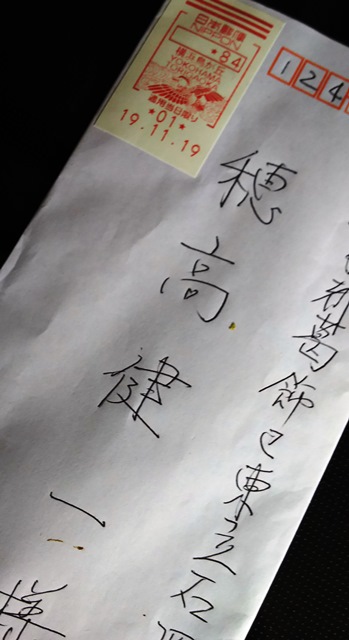 日本郵便
NIPPON
*84
YOKOHAMA
*01*
19.11.19
124
葛飾区東立石
穂高健一様